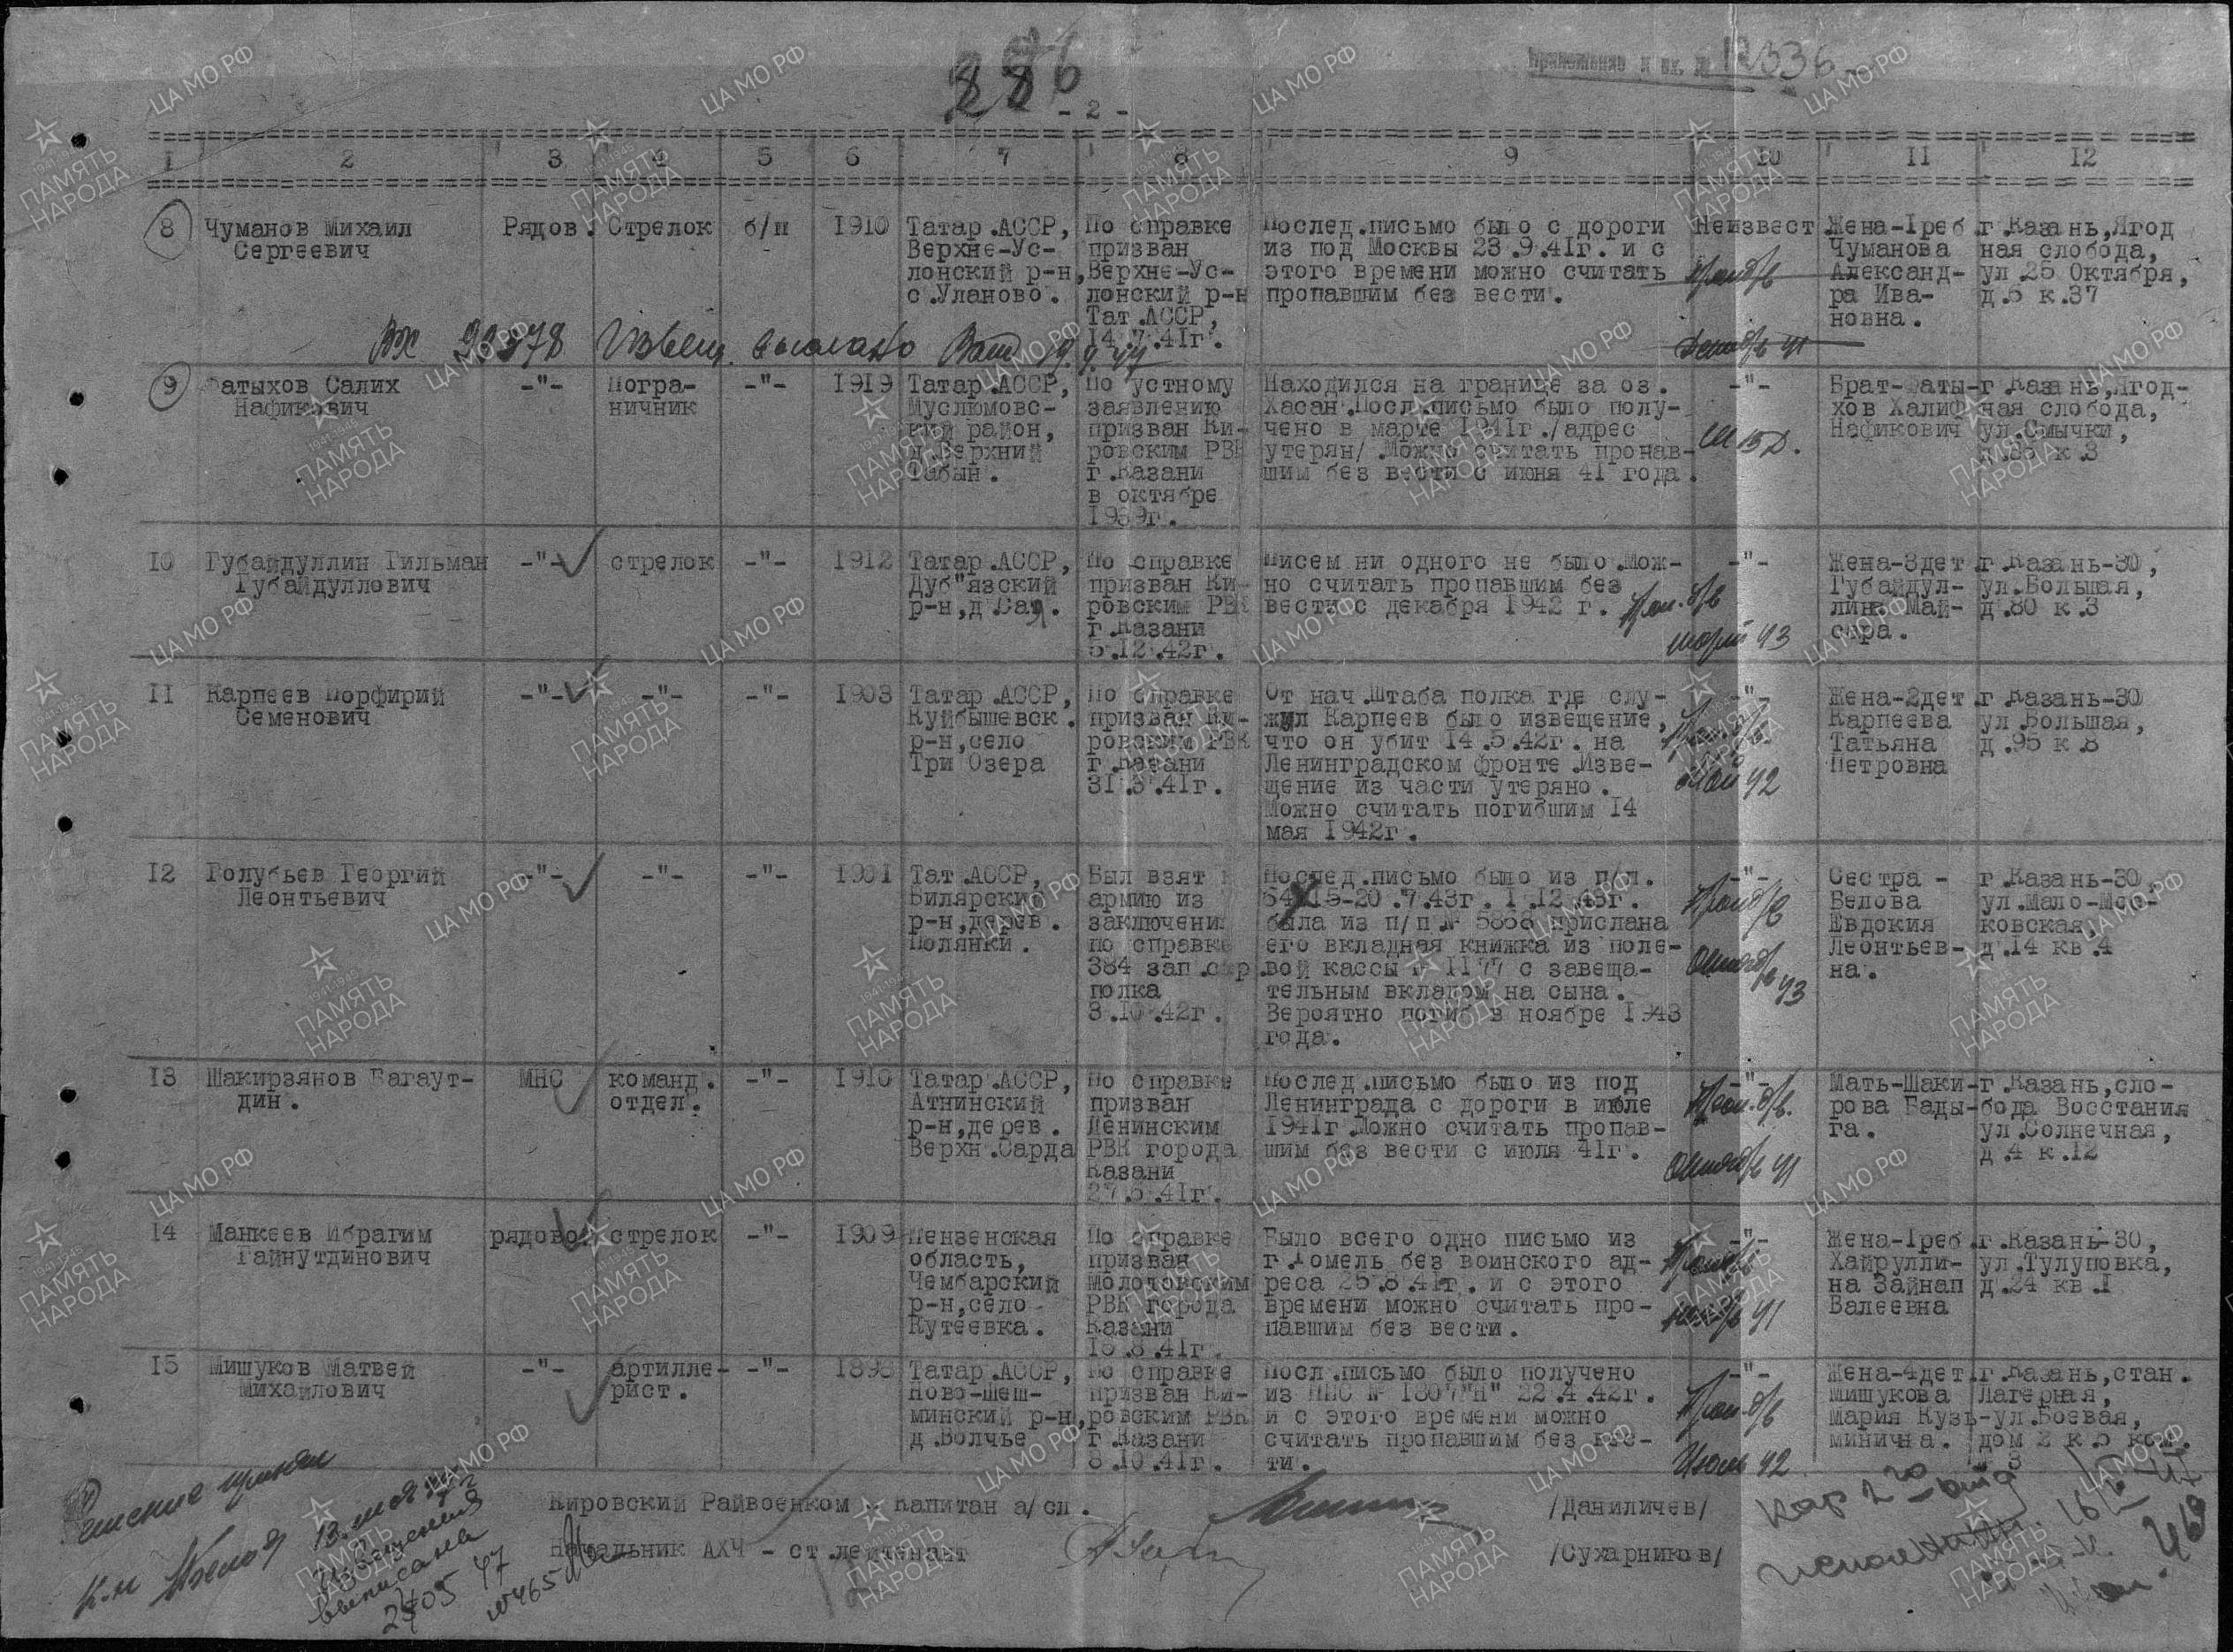 286
- 2 -
Приложение к вх. № 12336
1 2 3 4 5 6 7 8 9 10 11 12
8 Чуманов Михаил Рядов. Стрелок б/п 1910 Татар.АССР, По справке Послед.письмо было с дороги Неизвест Жена-1реб.г.Казань,Ягод
Сергеевич Верхне-Ус- призван из под Москвы 23.9.41г. и с Чуманова ная слобода,
лонский р-н, Верхне-Ус- этого времени можно считать проп б/в Александ- ул.25 Октября,
с.Уланово. лонский р-н пропавшим без вести. ра Ива- д.5 к.37
Тат.АССР, новна.
14.7.41г.
Извещ. выслано
9 Фатыхов Салих -"- Погра- -"- 1919 Татар.АССР, По устному Находился на границе за оз. -"- Брат-Фаты-г.Казань,Ягод-
Нафикович ничник Муслюмовс- заявлению Хасан.Посл.письмо было полу- хов Халиф ная слобода,
кий район, призван Ки- чено в марте 1941г./адрес Нафикович ул.Смычки,
д.Верхний ровским РВК утерян/.Можно считать пропав- д.35 к.3
Табын. г.Казани шим без вести с июня 41 года.
в октябре
1939г.
10 Губайдуллин Гильман -"- стрелок -"- 1912 Татар.АССР, По справке Писем ни одного не было.Мож- -"- Жена-3дет.г.Казань-30,
Губайдуллович Дуб"язский призван Ки- но считать пропавшим без Губайдул- ул.Большая,
р-н,д.Сая. ровским РВК вести с декабря 1942 г. Проп. б/в лина Май- д.80 к.3
г.Казани март 43 сара.
5.12.42г.
11 Карпеев Порфирий -"- -"- -"- 1903 Татар.АССР, По справке От нач.Штаба полка где слу- -"- Жена-2дет.г.Казань-30
Семенович Куйбышевск. призван Ки- жил Карпеев было извещение, Карпеева ул.Большая,
р-н,село ровским РВК что он убит 14.5.42г. на Татьяна д.95 к.8
Три Озера г.Казани Ленинградском фронте.Изве- Петровна
31.3.41г. щение из части утеряно. май 42
Можно считать погибшим 14
мая 1942г.
12 Голубьев Георгий -"- -"- -"- 1901 Тат.АССР, Был взят в Послед.письмо было из п/п. -"- Сестра - г.Казань-30,
Леонтьевич Билярский армию из 20.7.43г. 1.12.43г. Проп б/в Белова ул.Мало-Мос-
р-н,дерев. заключения была из п/п № 5868 прислана Евдокия ковская,
Полянки. по справке его вкладная книжка из поле- Леонтьев- д.14 кв.4
384 зап.стр. вой кассы № 1177 с завеща- октябрь 43 на.
полка тельным вкладом на сына.
3.10.42г. Вероятно погиб в ноябре 1943
года.
13 Шакирзянов Багаут- МНС команд. -"- 1910 Татар.АССР, По справке Послед.письмо было из под -"- Мать-Шаки-г.Казань,сло-
дин. отдел. Атнинский призван Ленинграда с дороги в июле Проп. б/в. рова Бады-бода Восстания
р-н,дерев. Ленинским 1941г.Можно считать пропав- га. ул.Солнечная,
Верхн.Сарда РВК города шим без вести с июля 41г. д.4 к.12
Казани октябрь 41
27.6.41г.
14 Манкеев Ибрагим рядовой стрелок -"- 1909 Пензенская По справке Было всего одно письмо из -"- Жена-1реб.г.Казань-30,
Гайнутдинович область, призван г.Гомель без воинского ад- Хайрулли- ул.Тулуповка,
Чембарский Молотовским реса 25.8.41г. и с этого на Зайнап д.24 кв.1
р-н,село РВК города времени можно считать про- Валеевна
Кутеевка. Казани павшим без вести.
15.8.41г.
15 Мишуков Матвей -"- артилле- -"- 1898 Татар.АССР, По справке Посл.письмо было получено -"- Жена-4дет.г.Казань,стан.
Михайлович рист. Ново-Шеш- призван Ки- из ППС № 1807"Н" 22.4.42г. Мишукова Лагерная,
минский р-н, ровским РВК и с этого времени можно Проп. б/в Мария Кузь-ул.Боевая,
д.Волчье г.Казани считать пропавшим без вес- минична. дом 2 к.5 ком.
8.10.41г. ти. Июль 42 3
Кировский Райвоенком - Капитан а/сл. /Даниличев/
Начальник АХЧ - ст.лейтенант /Сухарников/
Решение принял
13. мая 47
Извещения
выписана